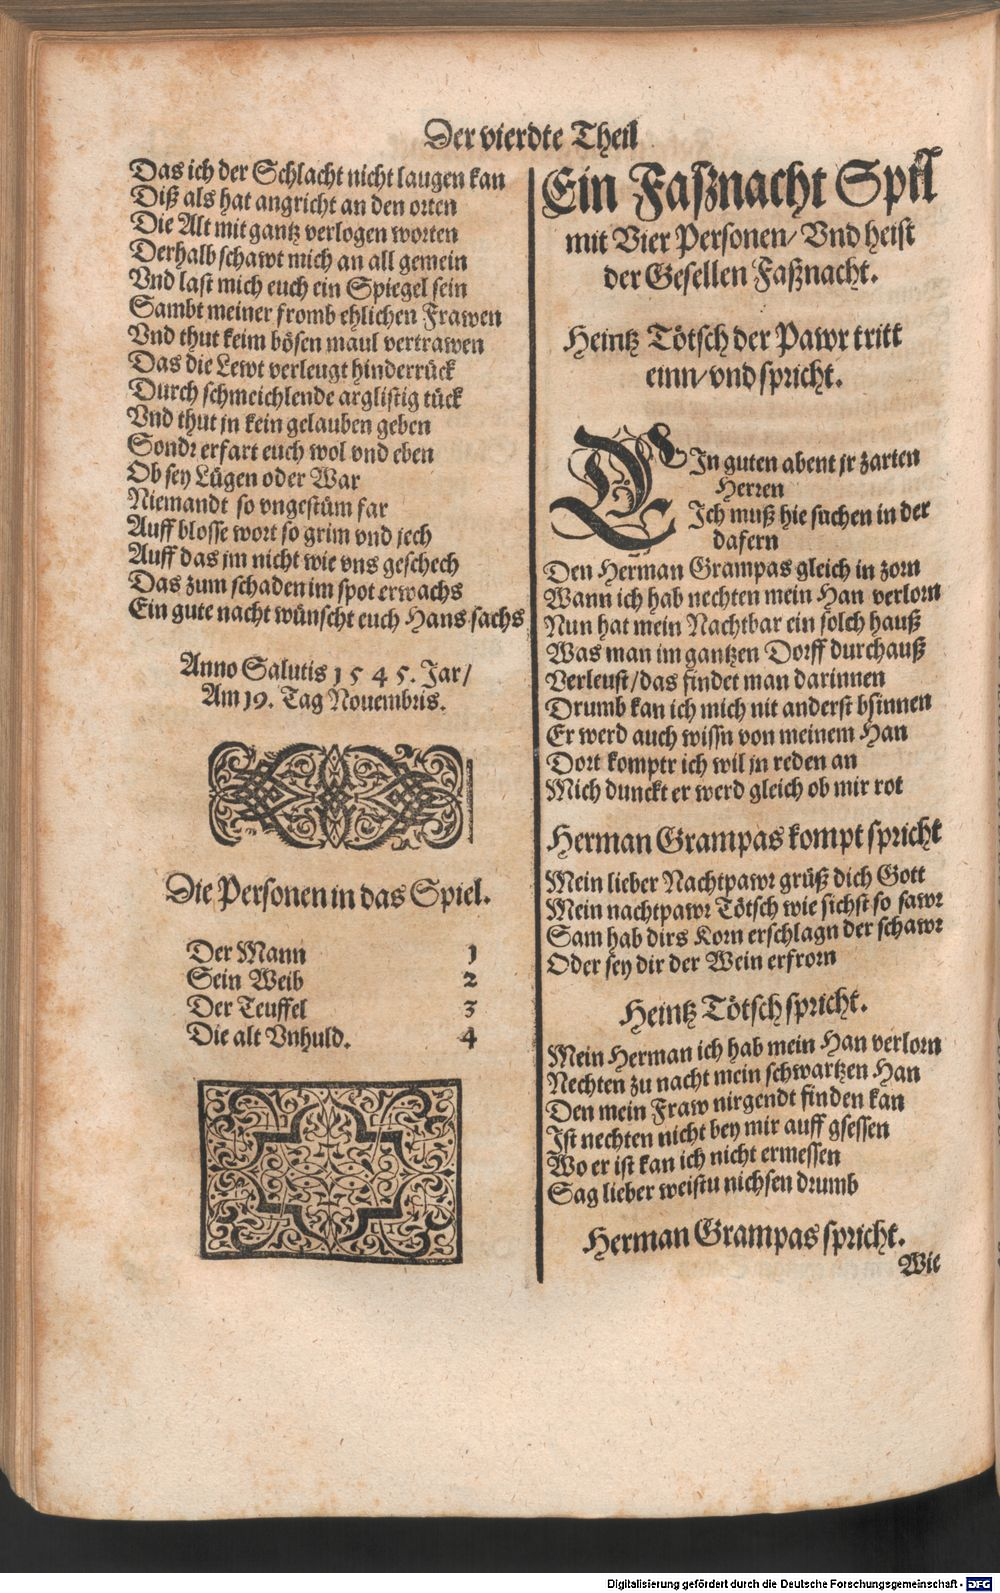 Der vierdte Theil
Das ich der Schlacht nicht laugen kan
Diß als hat angricht an den orten
Die Alt mit gantz verlogen worten
Derhalb schawt mich an all gemein
Vnd last mich euch ein Spiegel sein
Sambt meiner fromb ehlichen Frawen
Vnd thut keim bösen maul vertrawen
Das die Lewt verleugt hinderrück
Durch schmeichlende arglistig tück
Vnd thut jn kein gelauben geben
Sondr erfart euch wol vnd eben
Ob sey Lügen oder War
Niemandt so vngestüm far
Auff blosse wort so grim vnd jech
Auff das jm nicht wie vns geschech
Das zum schaden im spot erwachs
Ein gute nacht wünscht euch Hans sachs
Anno Salutis 1545. Jar/
Am 19. Tag Nouembris.
Die Personen in das Spiel.
Der Mann 1
Sein Weib 2
Der Teuffel 3
Die alt Vnhuld. 4
Ein Faßnacht Spil
mit Vier Personen/ Vnd heist
der Gesellen Faßnacht.
Heintz Tötsch der Pawr tritt
einn/ vnd spricht.
EIn guten abent jr zarten
Herren
Ich muß hie suchen in der
dafern
Den Herman Grampas gleich in zorn
Wann ich hab nechten mein Han verlorn
Nun hat mein Nachtbar ein solch hauß
Was man im gantzen Dorff durchauß
Verleust/ das findet man darinnen
Drumb kan ich mich nit anderst bsinnen
Er werd auch wissn von meinem Han
Dort komptr ich wil jn reden an
Mich dunckt er werd gleich ob mir rot
Herman Grampas kompt spricht
Mein lieber Nachtpawr grüß dich Gott
Mein nachtpawr Tötsch wie sichst so sawr
Sam hab dirs Korn erschlagn der schawr
Oder sey dir der Wein erfrorn
Heintz Tötsch spricht.
Mein Herman ich hab mein Han verlorn
Nechten zu nacht mein schwartzen Han
Den mein Fraw nirgendt finden kan
Ist nechten nicht bey mir auff gsessen
Wo er ist kan ich nicht ermessen
Sag lieber weistu nichsen drumb
Herman Grampas spricht.
Wie
Digitalisierung gefördert durch die Deutsche Forschungsgemeinschaft - DFG